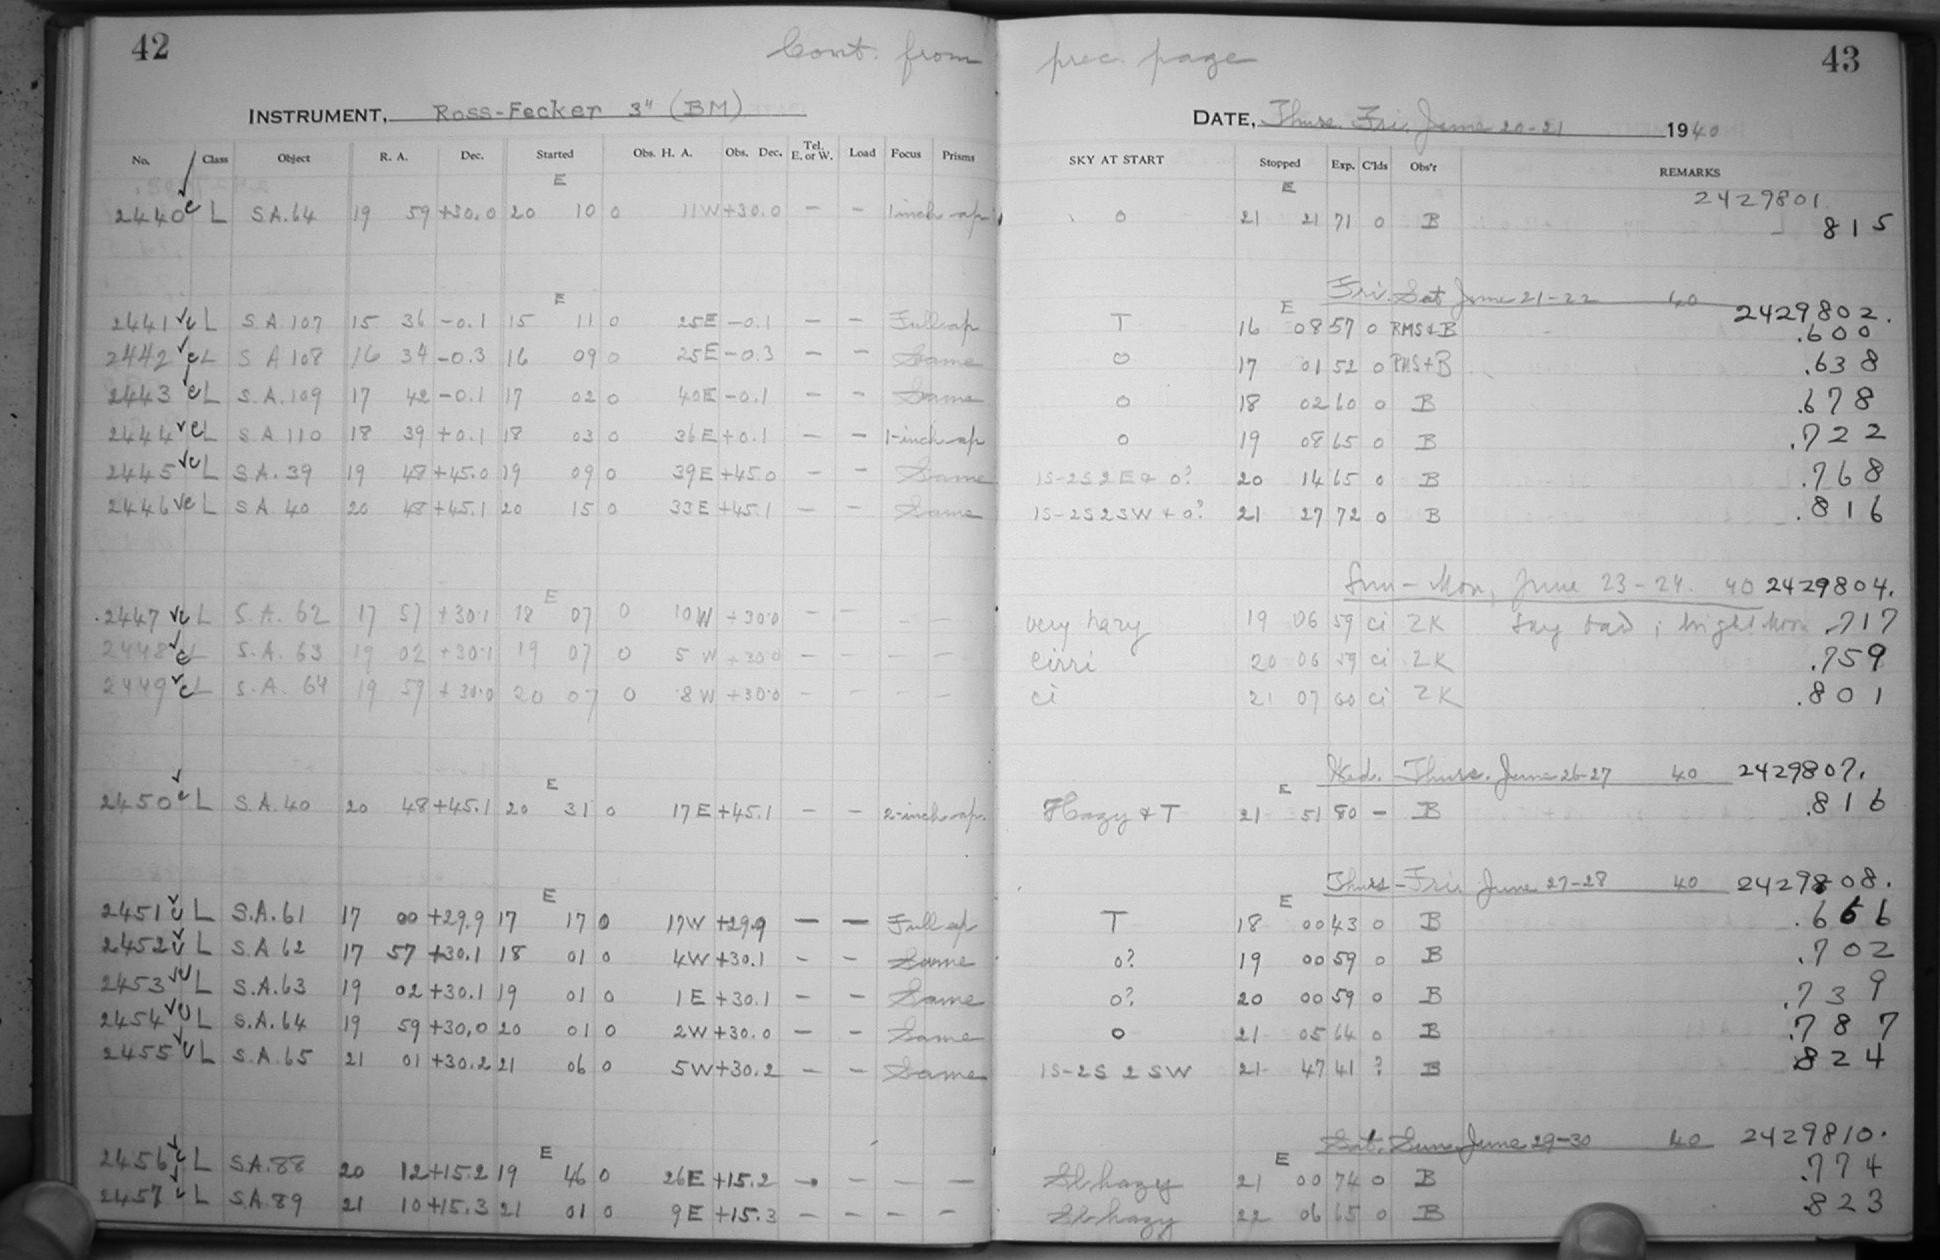 42 Cont. from prec. page 43
INSTRUMENT, Ross-Fecker 3" (BM) DATE, Thurs. Fri. June 20-21 1940
No. Class Object R. A. Dec. Started Obs. H. A. Obs. Dec. Tel. E. or W. Load Focus Prisms SKY AT START Stopped Exp. C'lds Obs'r REMARKS
E E 2429801.
2440 e L S.A.64 19 59 +30.0 20 10 0 11W +30.0 - - 1 inch ap 0 21 21 71 0 B 815
E E Fri. Sat June 21-22 40 2429802.
2441 e L S.A.107 15 36 -0.1 15 11 0 25E -0.1 - - Full ap T 16 08 57 0 RMS+B .600
2442 e L S A 108 16 34 -0.3 16 09 0 25E -0.3 - - Same 0 17 01 52 0 RMS+B .638
2443 e L S.A.109 17 42 -0.1 17 02 0 40E -0.1 - - Same 0 18 02 60 0 B .678
2444 e L S A 110 18 39 +0.1 18 03 0 36E +0.1 - - 1-inch ap 0 19 08 65 0 B .722
2445 e L S A.39 19 48 +45.0 19 09 0 39E +45.0 - - Same 1S-2S 2 E & 0? 20 14 65 0 B .768
2446 e L S A 40 20 48 +45.1 20 15 0 33E +45.1 - - Same 1S-2S 2 SW + 0? 21 27 72 0 B .816
E Sun - Mon, June 23-24. 40 2429804.
2447 e L S.A. 62 17 57 +30.1 18 07 0 10W +30.0 - - - - very hazy 19 06 59 ci ZK bad; bright Moon .717
2448 e L S.A. 63 19 02 +30.1 19 07 0 5 W +30.0 - - - - cirri 20 06 59 ci ZK .759
2449 e L S.A. 64 19 59 +30.0 20 07 0 8W +30.0 - - - - ci 21 07 60 ci ZK .801
E E Wed. Thurs. June 26-27 40 2429807.
2450 e L S.A.40 20 48 +45.1 20 31 0 17E +45.1 - - 2-inch ap. Hazy & T 21 51 80 - B .816
E E Thurs-Fri June 27-28 40 2429808.
2451 L S.A.61 17 00 +29.9 17 17 0 17W +29.9 - - Full ap T 18 00 43 0 B .666
2452 L S.A 62 17 57 +30.1 18 01 0 4W +30.1 - - Same 0? 19 00 59 0 B .702
2453 L S.A.63 19 02 +30.1 19 01 0 1E +30.1 - - Same 0? 20 00 59 0 B .739
2454 L S.A.64 19 59 +30.0 20 01 0 2W +30.0 - - Same 0 21 05 64 0 B .787
2455 L S.A.65 21 01 +30.2 21 06 0 5W +30.2 - - Same 1S-2S 2 SW 21 47 41 ? B .824
E E Sat. Sun. June 29-30 40 2429810.
2456 L S.A.88 20 12 +15.2 19 46 0 26E +15.2 - - - - Sl. hazy 21 00 74 0 B .774
2457 L S.A.89 21 10 +15.3 21 01 0 9E +15.3 - - - - Sl. hazy 22 06 65 0 B 823